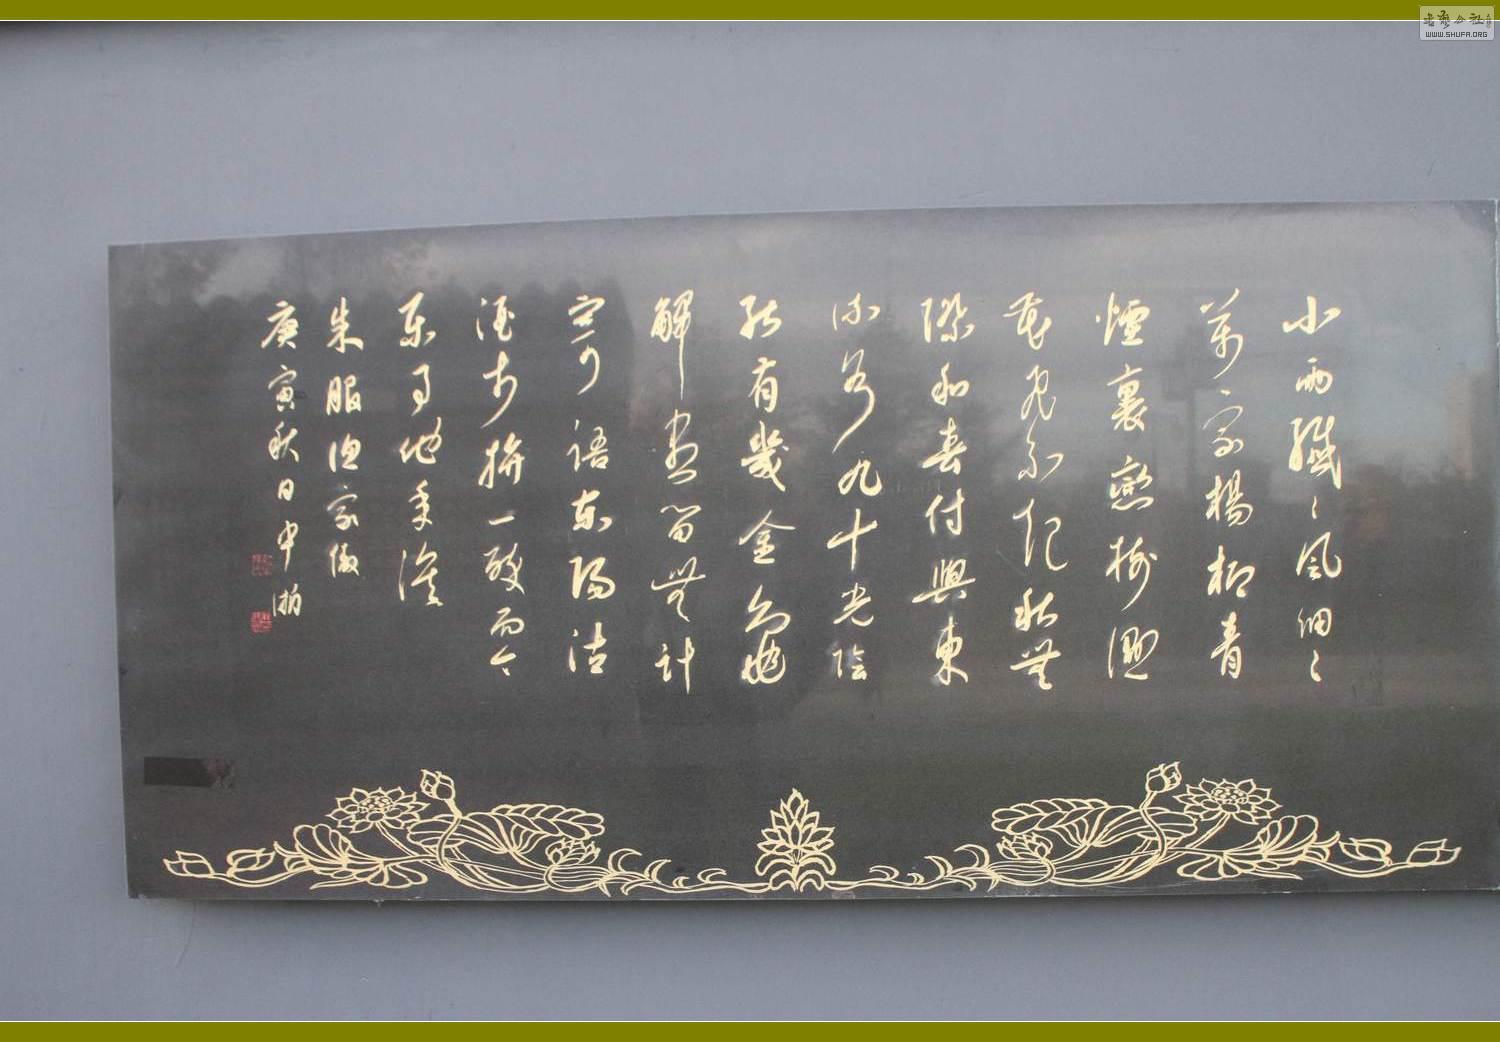 小雨纖〻風細〻
萬家楊柳青
煙裏戀樹濕
花飛不起愁無
際和春付與東
流水九十光陰
能有幾金龜
解盡留無計
寄語東陽沽
酒市拚一醉而今
樂事他年淚
朱服漁家傲
庚寅秋日
书艺公社
WWW.SHUFA.ORG